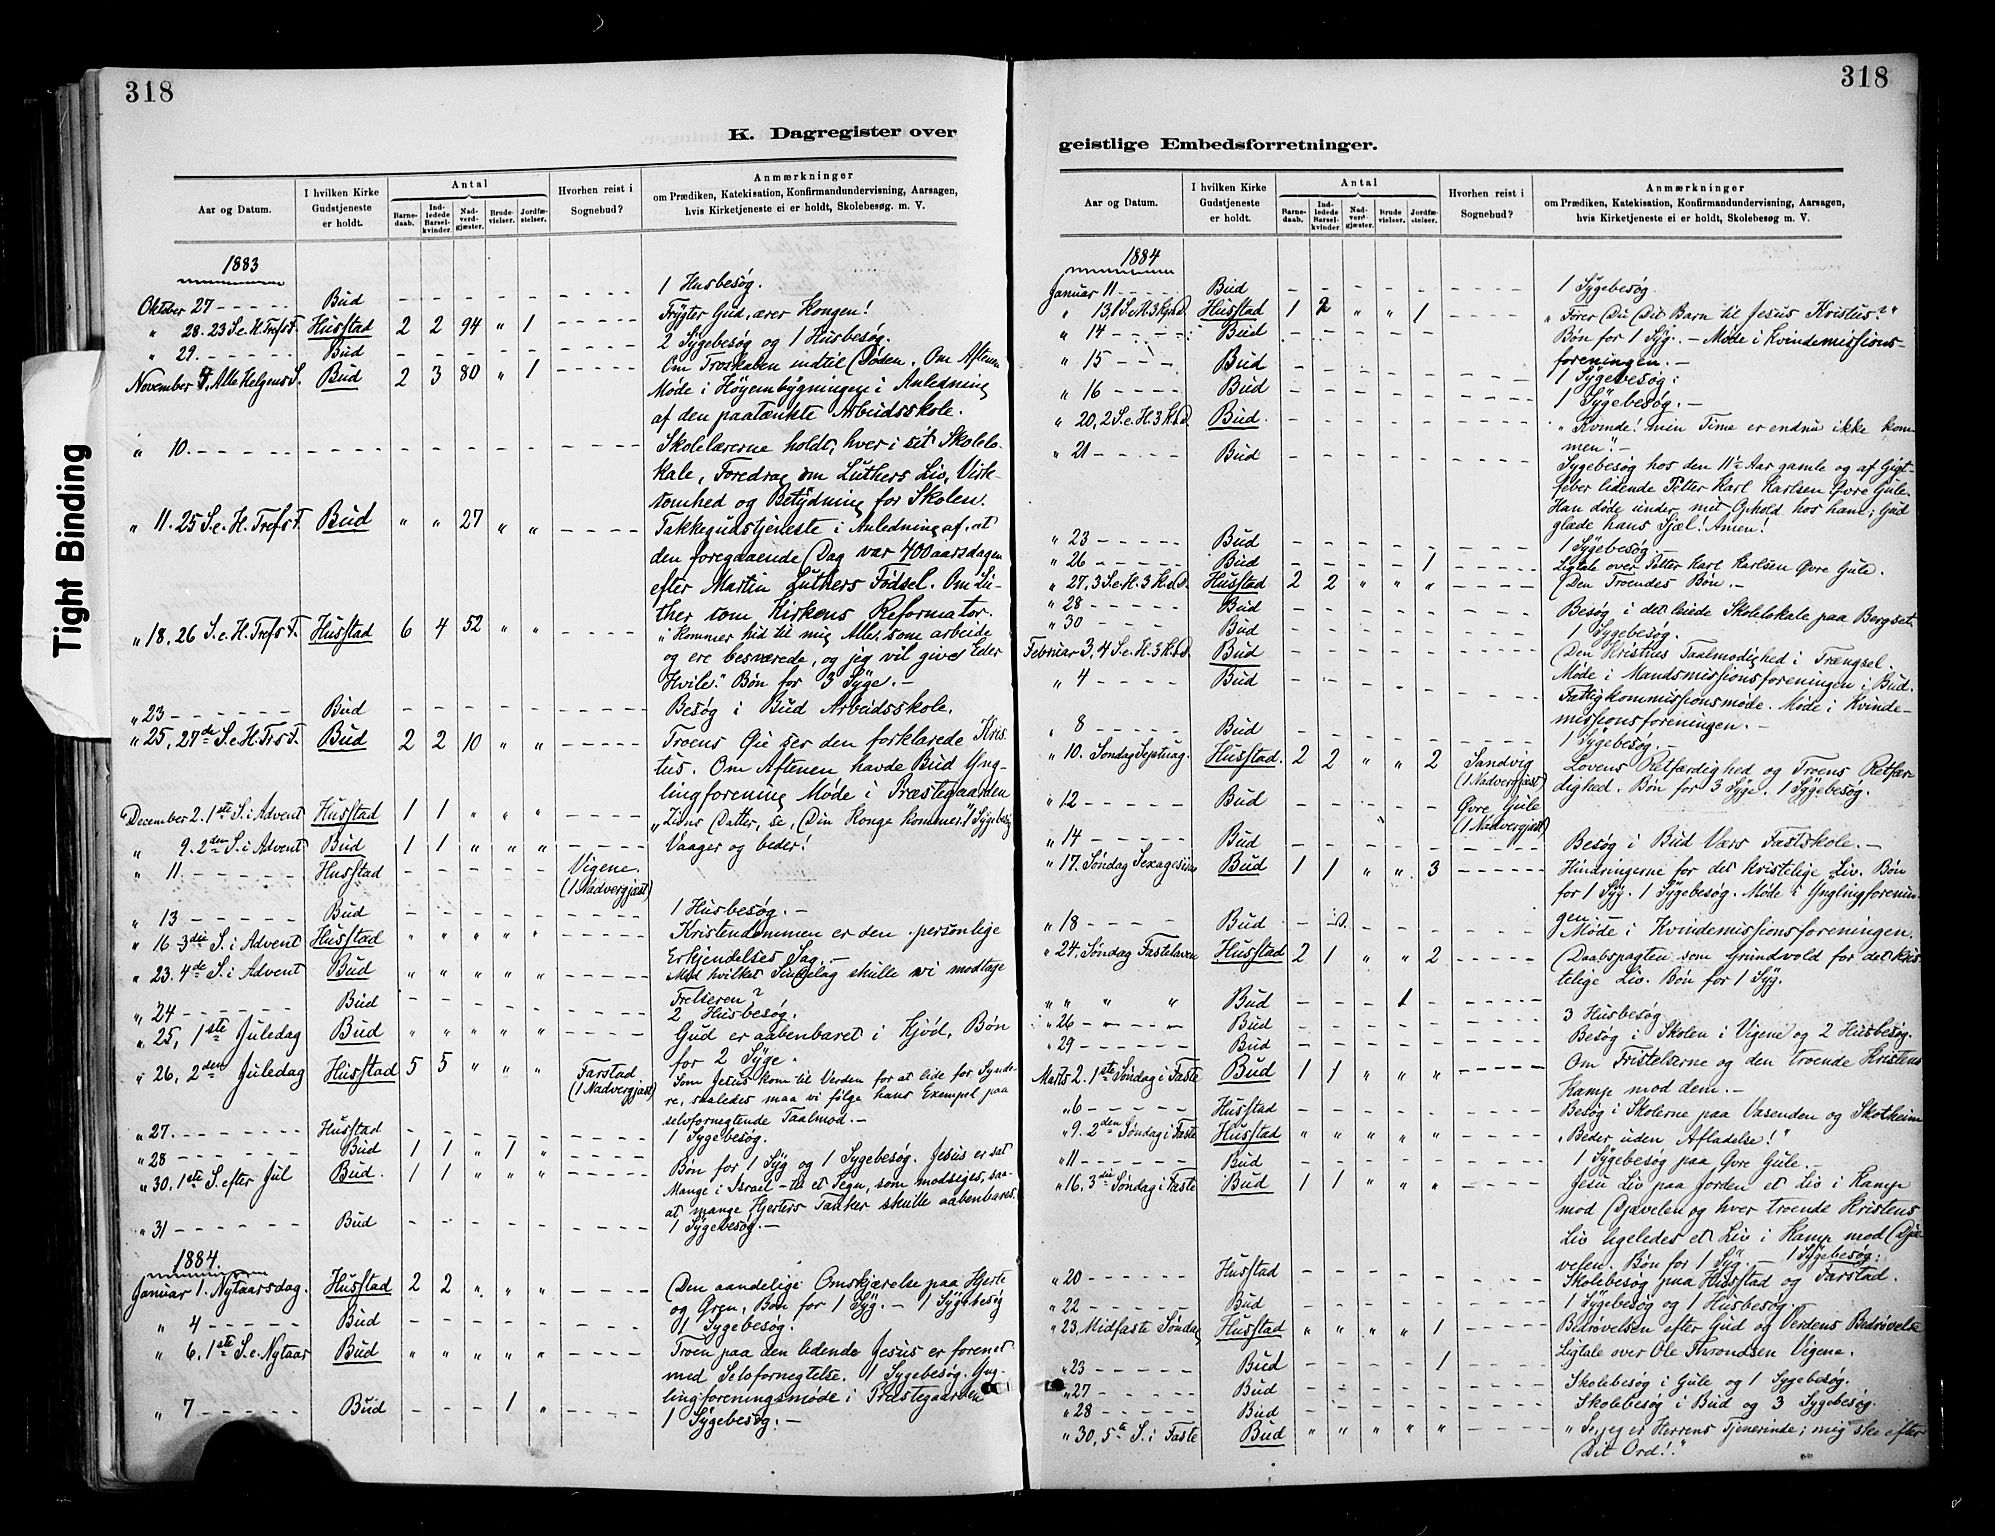 318
K. Dagregister over
Aar og Datum.
I hvilken Kirke Gudstjeneste er holdt.
Antal
Barnedaab.
Indledede Barselkvinder.
Nadverdgjæster.
Brudevielser.
Jordfæstelser.
Hvorhen reist i Sognebud?
Anmærkninger
om Prædiken, Katekisation, Konfirmandundervisning, Aarsagen,
hvis Kirketjeneste ei er holdt, Skolebesøg. m. V.
1883
Oktober 27 - - - - - Bud - - - - - - - - - 1 Husbesøg.
" 28. 23 S. e. H. Tref. F. Husstad 2 2 94 " 1 - - - - Frygter Gud, ærer Kongen!
" 29. - - - - - - Bud - - - - - - - - - 2 Sygebesøg og 1 Husbesøg.
November 4, Alle Helgens S. Bud 2 3 80 " 1 - - - - Om Troskaben indtil Døden. Om Aftenen
Møde i Høyembygningen i Anledning
af den paatænkte Arbeidsskole.
" 10. - - - - - - - - - - - - - - Skolelærerne holdt, hver i sit Skolelo-
kale, Foredrag om Luthers Liv, Virk-
somhed og Betydning for Skolen.
" 11. 25 S. e. H. Tref. F. Bud " " 27 " " - - - - Takkegudstjeneste i Anledning af, at
den foregaaende Dag var 400 aarsdagen
efter Martin Luthers Fødsel. Om Lu-
ther som Kirkens Reformator.
" 18. 26 S. e. H. Tref. F. Husstad 6 4 52 " " - - - - "Kommer hid til mig Alle, som arbeide
og ere besværede, og jeg vil give Eder
Hvile." Bøn for 3 Syge. -
" 23 - - - - - - Bud - - - - - - - - - Besøg i Bud Arbeidsskole.
" 25, 27de S. e. H. Trf. F. Bud 2 2 10 " " - - - - - Troens Øie ser den forklarede Kris-
tus. Om Aftenen havde Bud Yng-
lingforening Møde i Præstegaarden
December 2. 1ste S. i Advent Husstad 1 1 " " " - - - - - "Zions Datter, se, Din Konge kommer." 1 Sygebesøg
" 9. 2den S. i Advent Bud 1 1 " " " - - - - Vaager og beder!
" 11 - - - - - Husstad - - - - - Vigene.
(1 Nadvergjæst)
" 13 - - - - - Bud - - - - - - - - - 1 Husbesøg. -
" 16 3die S. i Advent Husstad " " " " " - - - - Kristendommen er den personlige
Erkjendelses Sag. -
" 23. 4de S. i Advent Bud " " " " " - - - - Med hvilket Sindelag skulle vi modtage
Frelseren?
" 24 - - - - - - Bud - - - - - - - - - 2 Husbesøg.
" 25, 1ste Juledag Bud " " " " " - - - - Gud er aabenbaret i Kjød, Bøn
for 2 Syge.
" 26, 2den Juledag Husstad 5 5 " " " Farstad Som Jesus kom til Verden for at lide for Synde-
(1 Nadvergjæst) re, saaledes maa vi følge hans Exempel paa
selvfornegtende Taalmod. -
" 27. - - - - - - Husstad - - - - - - - - - 1 Sygebesøg.
" 28 - - - - - - Bud 1 1 " 1 " - - - -
" 30, 1ste S. efter Jul Bud. 1 1 " " " - - - - Bøn for 1 Syg og 1 Sygebesøg. Jesus er sat
Mange i Israel - til et Tegn, som modsiges, saa-
at mange Hjerters Tanker skulle aabenbares.
" 31 - - - - - - Bud - - - - - - - - - 1 Sygebesøg. -
1884.
Januar 1. Nytaarsdag. Husstad 2 2 " " " - - - - Den aandelige Omskjærelse paa Hjerte
og Øren, Bøn for 1 Syg. - 1 Sygebesøg
" 4 - - - - - - Bud - - - - - - - - - 1 Sygebesøg.
" 6, 1ste S. e. Nytaar Bud " " " " " - - - - Troen paa den lidende Jesus er forenet
med Selvfornegtelse. 1 Sygebesøg. Yng-
lingforeningsmøde i Præstegaarden
" 7 - - - - - - Bud - - - 1 " - - - - 1 Sygebesøg. -
318
geistlige Embedsforretninger.
Aar og Datum.
I hvilken Kirke Gudstjeneste er holdt.
Antal
Barnedaab.
Indledede Barselkvinder.
Nadverdgjæster.
Brudevielser.
Jordfæstelser.
Hvorhen reist i Sognebud?
Anmærkninger
om Prædiken, Katekisation, Konfirmandundervisning, Aarsagen,
hvis Kirketjeneste ei er holdt, Skolebesøg m. V.
1884
Januar 11 - - - - Bud - - - - - - - - - 1 Sygebesøg.
" 13, 1 S. e. H. 3 K. d. Husstad 1 2 " " 1 - - - - "Fører Du Dit Barn til Jesus Kristus?"
" 14 - - - - - Bud - - - - - - - - - Bøn for 1 Syg. - Møde i Kvindemissions-
foreningen. -
" 15 - - - - Bud - - - - - - - - - 1 Sygebesøg:
" 16 - - - - Bud - - - - - - - - - 1 Sygebesøg. -
" 20, 2 S. e. H. 3 K. d. Bud. - - - - - - - - - "Kvinde! min Time er endnu ikke kom-
men". -
" 21 - - - - - Bud - - - - - - - - - Sygebesøg hos den 11½ Aar gamle og af Gigt-
feber lidende Petter Karl Karlsen Øvre Gule.
Han døde under mit Ophold hos ham; Gud
glæde hans Sjæl! Amen!
" 23 - - - - - Bud - - - - - - - - - 1 Sygebesøg -
" 26 - - - - - Bud - - - - 1 - - - - Ligtale over Petter Karl Karlsen Øvre Gule.
" 27, 3 S. e. H. 3 K. d. Husstad 2 2 " " " - - - - Den Troendes Bøn. -
" 28 - - - - - Bud - - - - - - - - - Besøg i det leiede Skolelokale paa Bergset.
" 30 - - - - - Bud - - - - - - - - - 1 Sygebesøg.
Februar 3, 4 S. e. H. 3 K. d. Bud - - - - - - - - - Den Kristnes Taalmodighed i Trængsel.
" 4 - - - - Bud - - - - - - - - - Møde i Mandsmissionsforeningen i Bud.
Fattigkommissionsmøde. Møde i Kvinde-
missionsforeningen. -
" 8 - - - - Bud - - - - - - - - - 1 Sygebesøg. -
" 10. Søndag Septuag. Husstad. 2 2 " " 2 Sandvig Lovens Retfærdighed og Troens Retfær-
(1 Nadvergjæst) dighed. Bøn for 3 Syge. 1 Sygebesøg.
" 12 - - - - - Bud - - - - - Øvre Gule
(1 Nadvergjæst)
" 14 - - - - - Bud - - - - - - - - - Besøg i Bud Værs Fastskole. -
" 17. Søndag Sexagesima Bud 1 1 " " 3 - - - - - Hindringerne for det kristelige Liv. Bøn
for 1 Syg. 1 Sygebesøg. Møde i Ynglingforenin-
gen
" 18 - - - - Bud - - - - - - - - - Møde i Kvindemissionsforeningen.
" 24. Søndag Fastelaven Husstad 2 1 " " 2 - - - - Daabspagten som Grundvold for det kris-
telige Liv. Bøn for 1 Syg.
" " " " Bud - - - 1 - - - - -
" 26 - " - " - Bud - - - - - - - - - 3 Husbesøg
" 29 - - - - - Bud - - - - - - - - - Besøg i Skolen i Vigene og 2 Husbesøg.
Marts 2. 1ste Søndag i Faste Bud 1 1 " " " - - - - - Om Fristelserne og den troende Kristens
Kamp mod dem. -
" 6 - - - - - Husstad - - - - - - - - - Besøg i Skolerne paa Vasenden og Skotheim
" 9. 2den Søndag i Faste Husstad " " " " " - - - - "Beder uden Afladelse!"
" 11 - - - - - - Bud - - - - - - - - - 1 Sygebesøg paa Øvre Gule. -
" 16, 3die Søndag i Faste Bud 1 1 " " " - - - - - Jesu Liv paa Jorden et Liv i Kamp
mod Djævelen og hver troende Kristens
Liv ligeledes et Liv i Kamp mod Djæ-
velen. Bøn for 1 Syg - 1 Sygebesøg.
" 20 - - - - - Husstad - - - - - - - - - Skolebesøg paa Husstad og Farstad.
" 22 - - - - - Bud - - - - - - - - - 1 Sygebesøg og 1 Husbesøg -
" 23, Midfaste Søndag Husstad " " " " 1 - - - - Bedrøvelsen efter Gud og Verdens Bedrøvelse
" 23 - - - - Bud - - - - 1 - - - - Ligtale over Ole Throndsen Vigene.
" 27 - - - - - Bud - - - - - - - - - Skolebesøg i Gule og 1 Sygebesøg.
" 28 - - - - - Bud - - - - - - - - - Skolebesøg i Bud og 3 Sygebesøg.
" 30, 5te S. i Faste Bud " " " " " - - - - "Se, jeg er Herrens Tjenerinde; mig ske efter
Dit Ord!"
Tight Binding